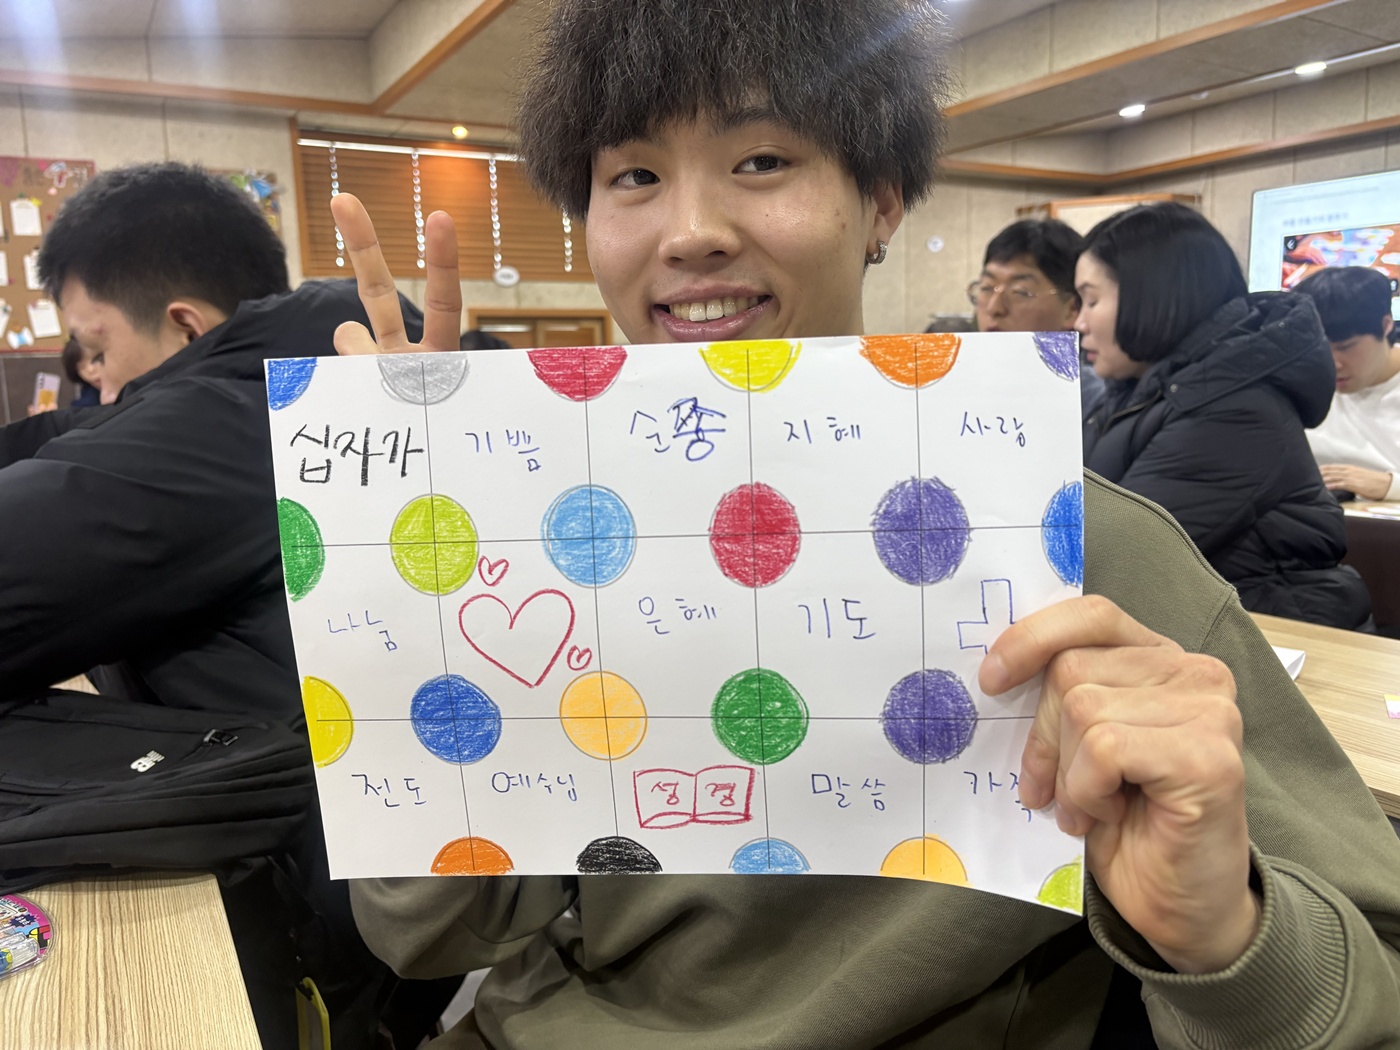 십자가 기쁨 순종 지혜 사랑
나눔 은혜 기도
전도 예수님 성경 말씀